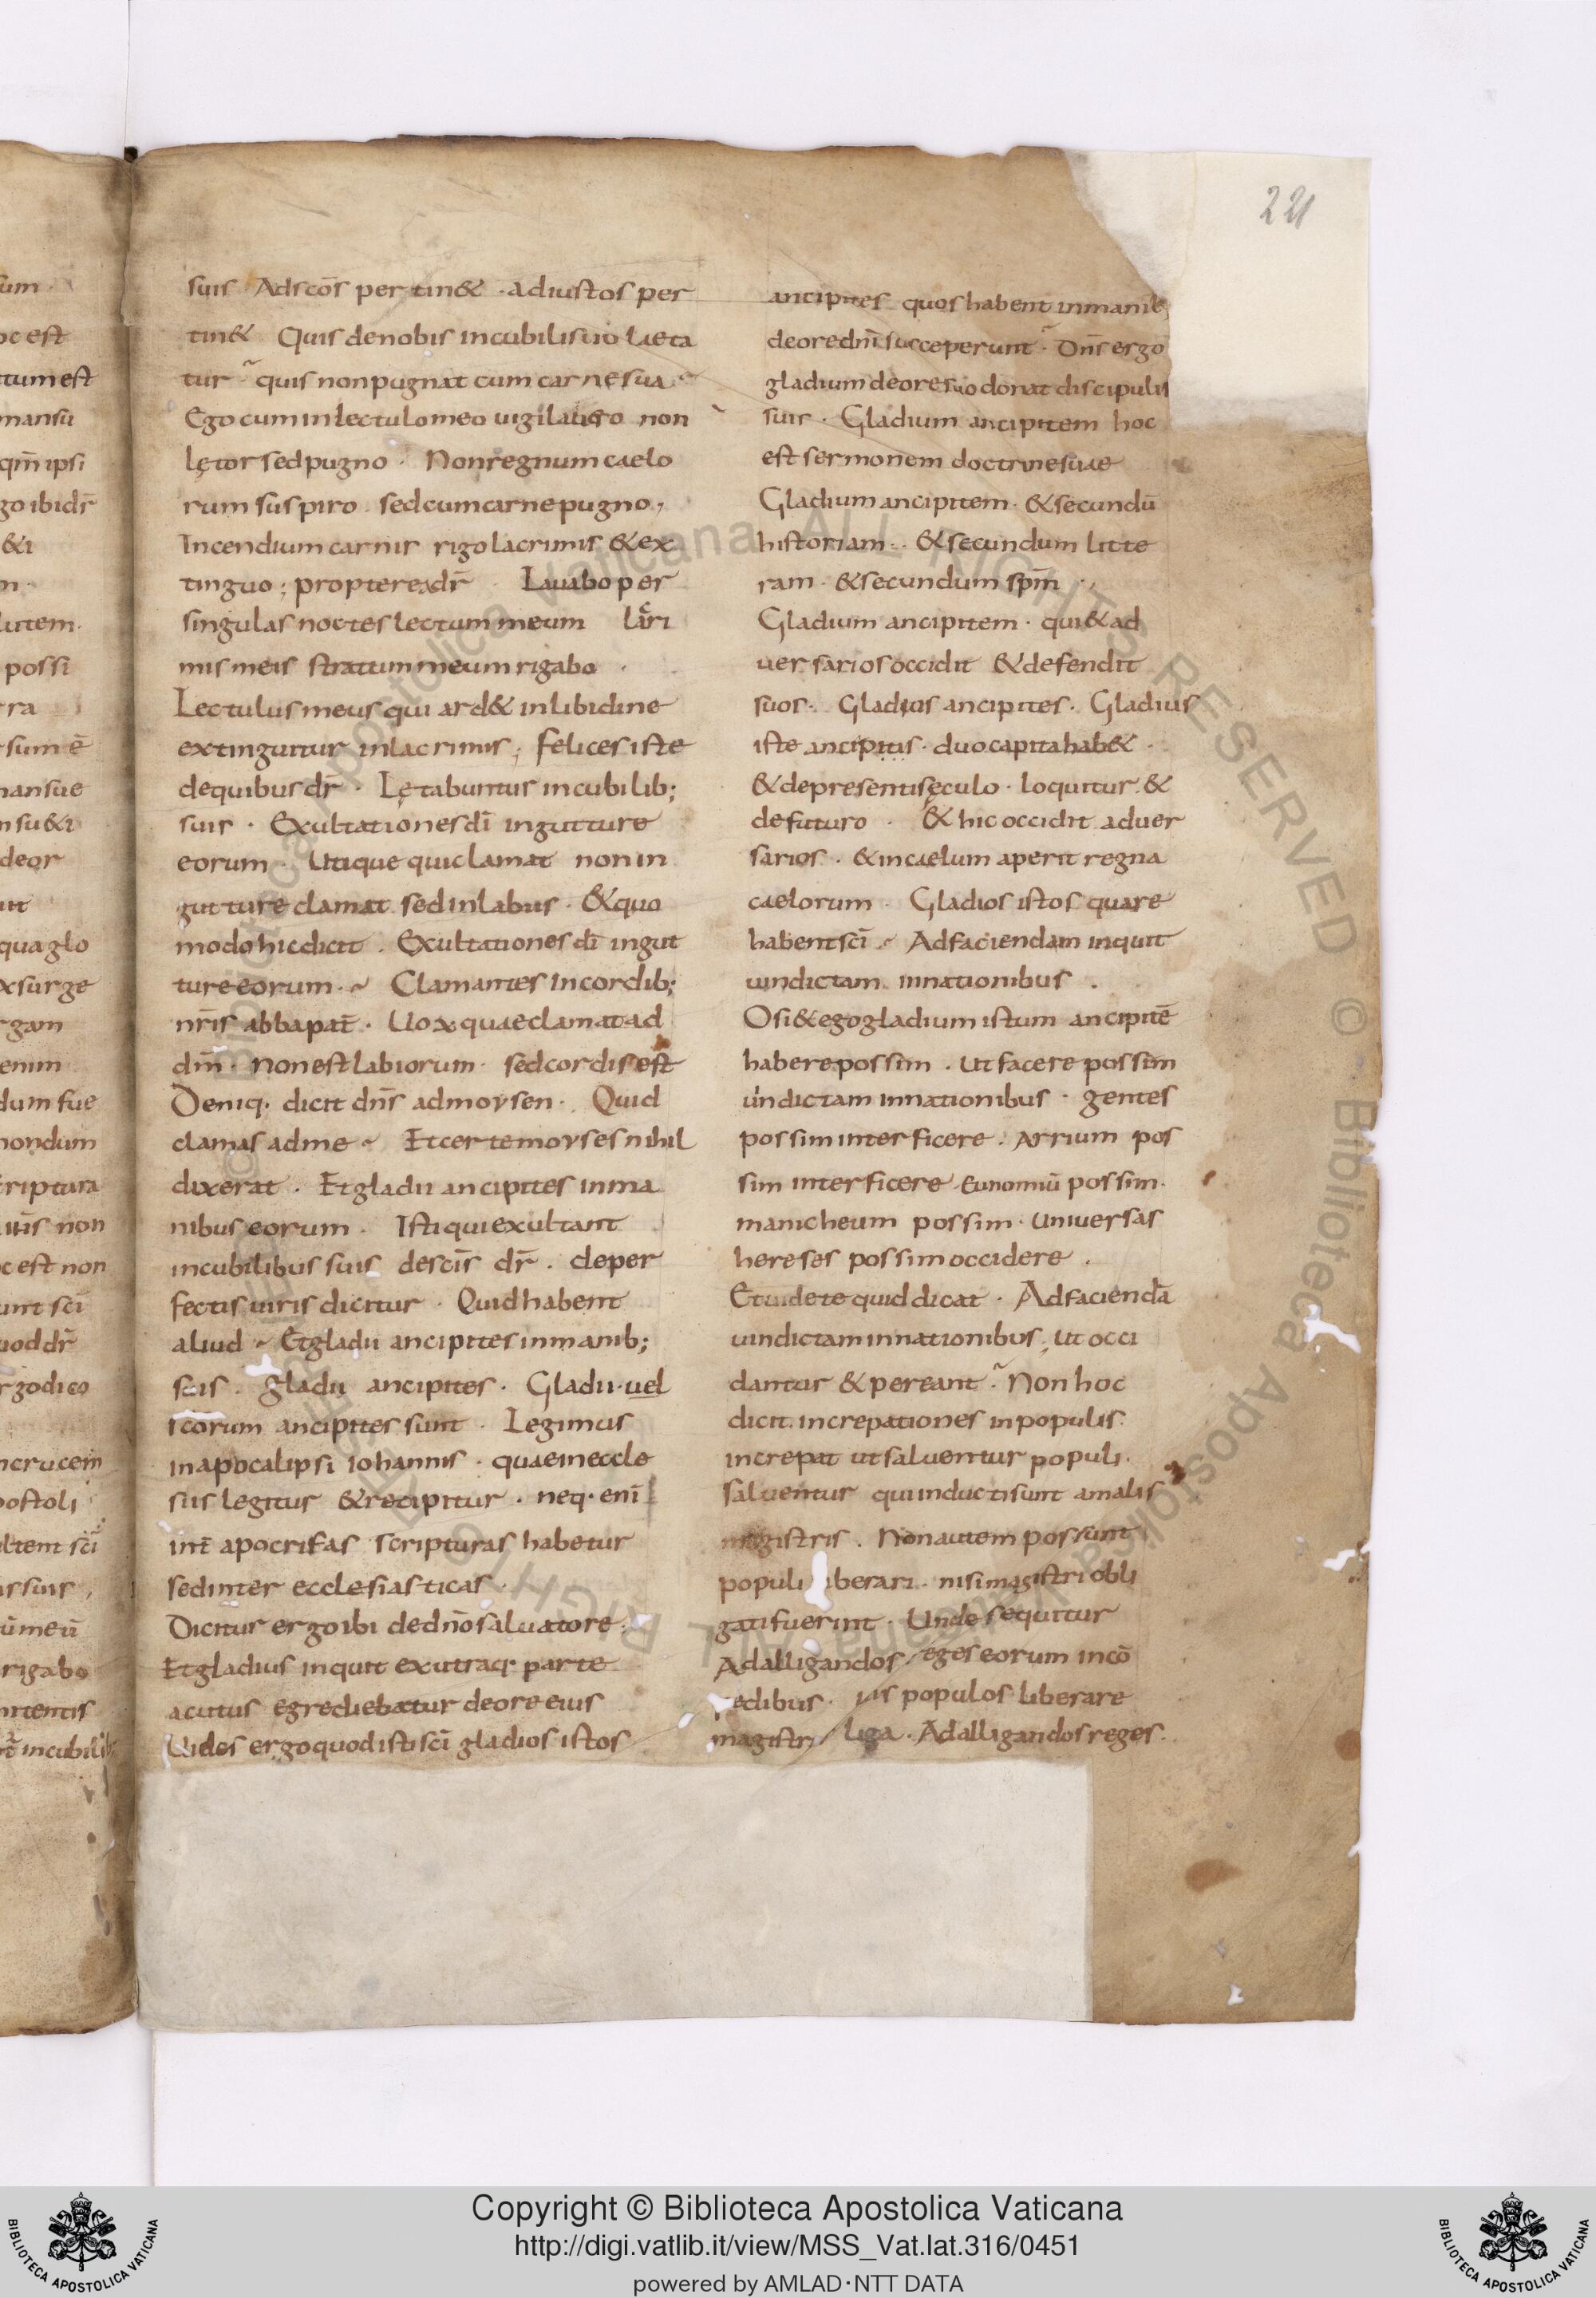 221
um
oc est
tum est
mansu
qm̄ ipsi
go ibi dr̄
&i
n
lutem.
possi
ra
sum ē
mansue
nsu&i
deor
unt
qua glo
xsurge
rgam
enim
dum fue
nondum
criptura
non
c est non
unt sci
uod dr̄
r zodico
ncrucem
postoli
ltem sci
is suis
ū meū
rigabo
nitentis
in cubilib;
suis · Ad scōs pertin& · ad iustos per
tin& Quis de nobis in cubili suo laeta
tur quis non pugnat cum carne sua
Ego cum in lectulo meo uigilauero non
lętor sed pugno · Non regnum caelo
rum suspiro sed cum carne pugno,
Incendium carnis rigo lacrimis & ex
tinguo; propterea dr̄ Lauabo per
singulas noctes lectum meum lacri
mis meis stratum meum rigabo ·
Lectulus meus qui ard& in libidine
extinguitur in lacrimis; felices iste
de quibus dr̄ · Lętabuntur in cubilib;
suis · Exultationes dī in gutture
eorum · Utique qui clamat non in
gutture clamat sed in labiis · & quo
modo hic dicit · Exultationes dī in gut
ture eorum · Clamantes in cordib;
nr̄is abba pat̄ · Uox quae clamat ad
dm̄ · non est labiorum · sed cordis est
Deniq· dicit dn̄s ad moysen · Quid
clamas ad me Et certe moyses nihil
dixerat · Et gladii ancipites in ma
nibus eorum · Isti qui exultant
in cubilibus suis de scīs dr̄ · de per
fectis uiris dicitur · Quid habent
aliud Et gladii ancipites in manib;
suis · gladii ancipites · Gladii · uel
scōrum ancipites sunt · Legimus
in apocalipsi iohannis · quae in eccle
siis legitur & recipitur · neq· enī
int̄ apocrifas scripturas habetur
sed inter ecclesiasticas ·
Dicitur ergo ibi de dn̄o saluatore
Et gladius inquit ex utraq· parte
acutus egrediebatur de ore eius
Uides ergo quod isti scī gladios istos
ancipites quos habent in manib;
de ore dn̄i susceperunt · Dn̄s ergo
gladium de ore suo donat discipulis
suis · Gladium ancipitem hoc
est sermonem doctrine suae
Gladium ancipitem · & secundū
historiam · & secundum litte
ram · & secundum spm̄
Gladium ancipitem · qui & ad
uersarios occidit & defendit
suos · Gladius ancipites · Gladius
iste ancipitis · duo capita hab& ·
& de presenti sęculo · loquitur &
de futuro · & hic occidit aduer
sarios · & in caelum aperit regna
caelorum · Gladios istos quare
habent scī Ad faciendam inquit
uindictam in nationibus ·
O si & ego gladium istum ancipitē
habere possim · Ut facere possim
uindictam in nationibus · gentes
possim interficere · Arrium pos
sim interficere · Eunomiū possim ·
manicheum possim · Uniuersas
hereses possim occidere ·
Et uidete quid dicat · Ad faciendā
uindictam in nationibus, ut occi
dantur & pereant · Non hoc
dicit · increpationes in populis ·
increpat ut saluentur populi ·
saluentur qui inducti sunt a malis
magistris · Non autem possunt
populi iberari · nisi magistri obli
gati fuerint · Unde sequitur
Ad alligandos eges eorum in cō
edibus · uis populos liberare
magistr liga · Ad alligandos reges ·
Copyright © Biblioteca Apostolica Vaticana
http://digi.vatlib.it/view/MSS_Vat.lat.316/0451
powered by AMLAD·NTT DATA
BIBLIOTECA APOSTOLICA VATICANA
BIBLIOTECA APOSTOLICA VATICANA